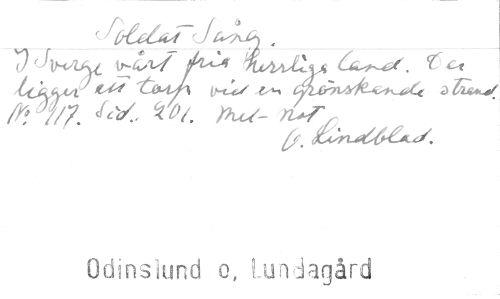 Soldat Sång.
I Sverge vårt fria herrliga land. Der
ligger ett torp vid en grönskande strand.
No. 117. Sid.. 201. Mel- Not
O. Lindblad.
Odinslund o, Lundagård